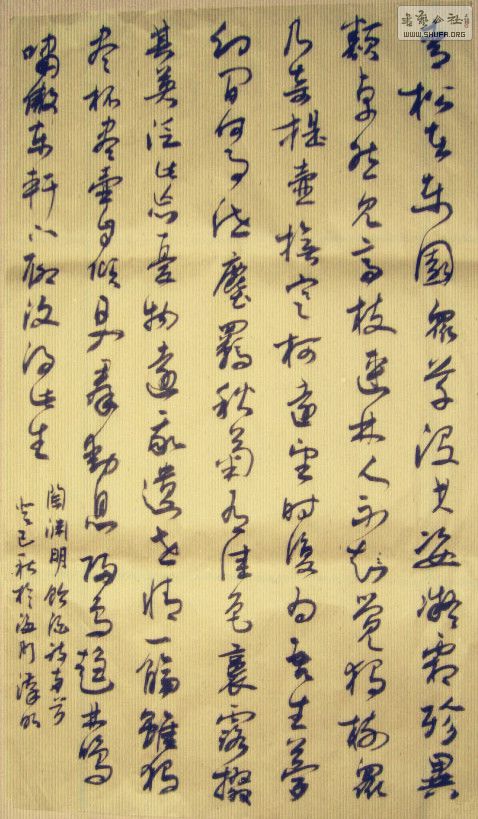 書藝公社
WWW.SHUFA.ORG
青松在東園眾草没其姿凝霜殄異
類卓然見高枝連林人不覺獨樹眾
乃奇提壺撫寒柯遠望时復為吾生夢
幻間何事绁塵羈秋菊有佳色裛露掇
其英泛此忘憂物遠我遺世情一觴雖獨
盡杯盡壺自傾日入羣動息歸鳥趨林鳴
嘯傲東軒下聊復得此生
陶渊明飲酒诗
癸巳秋於海门